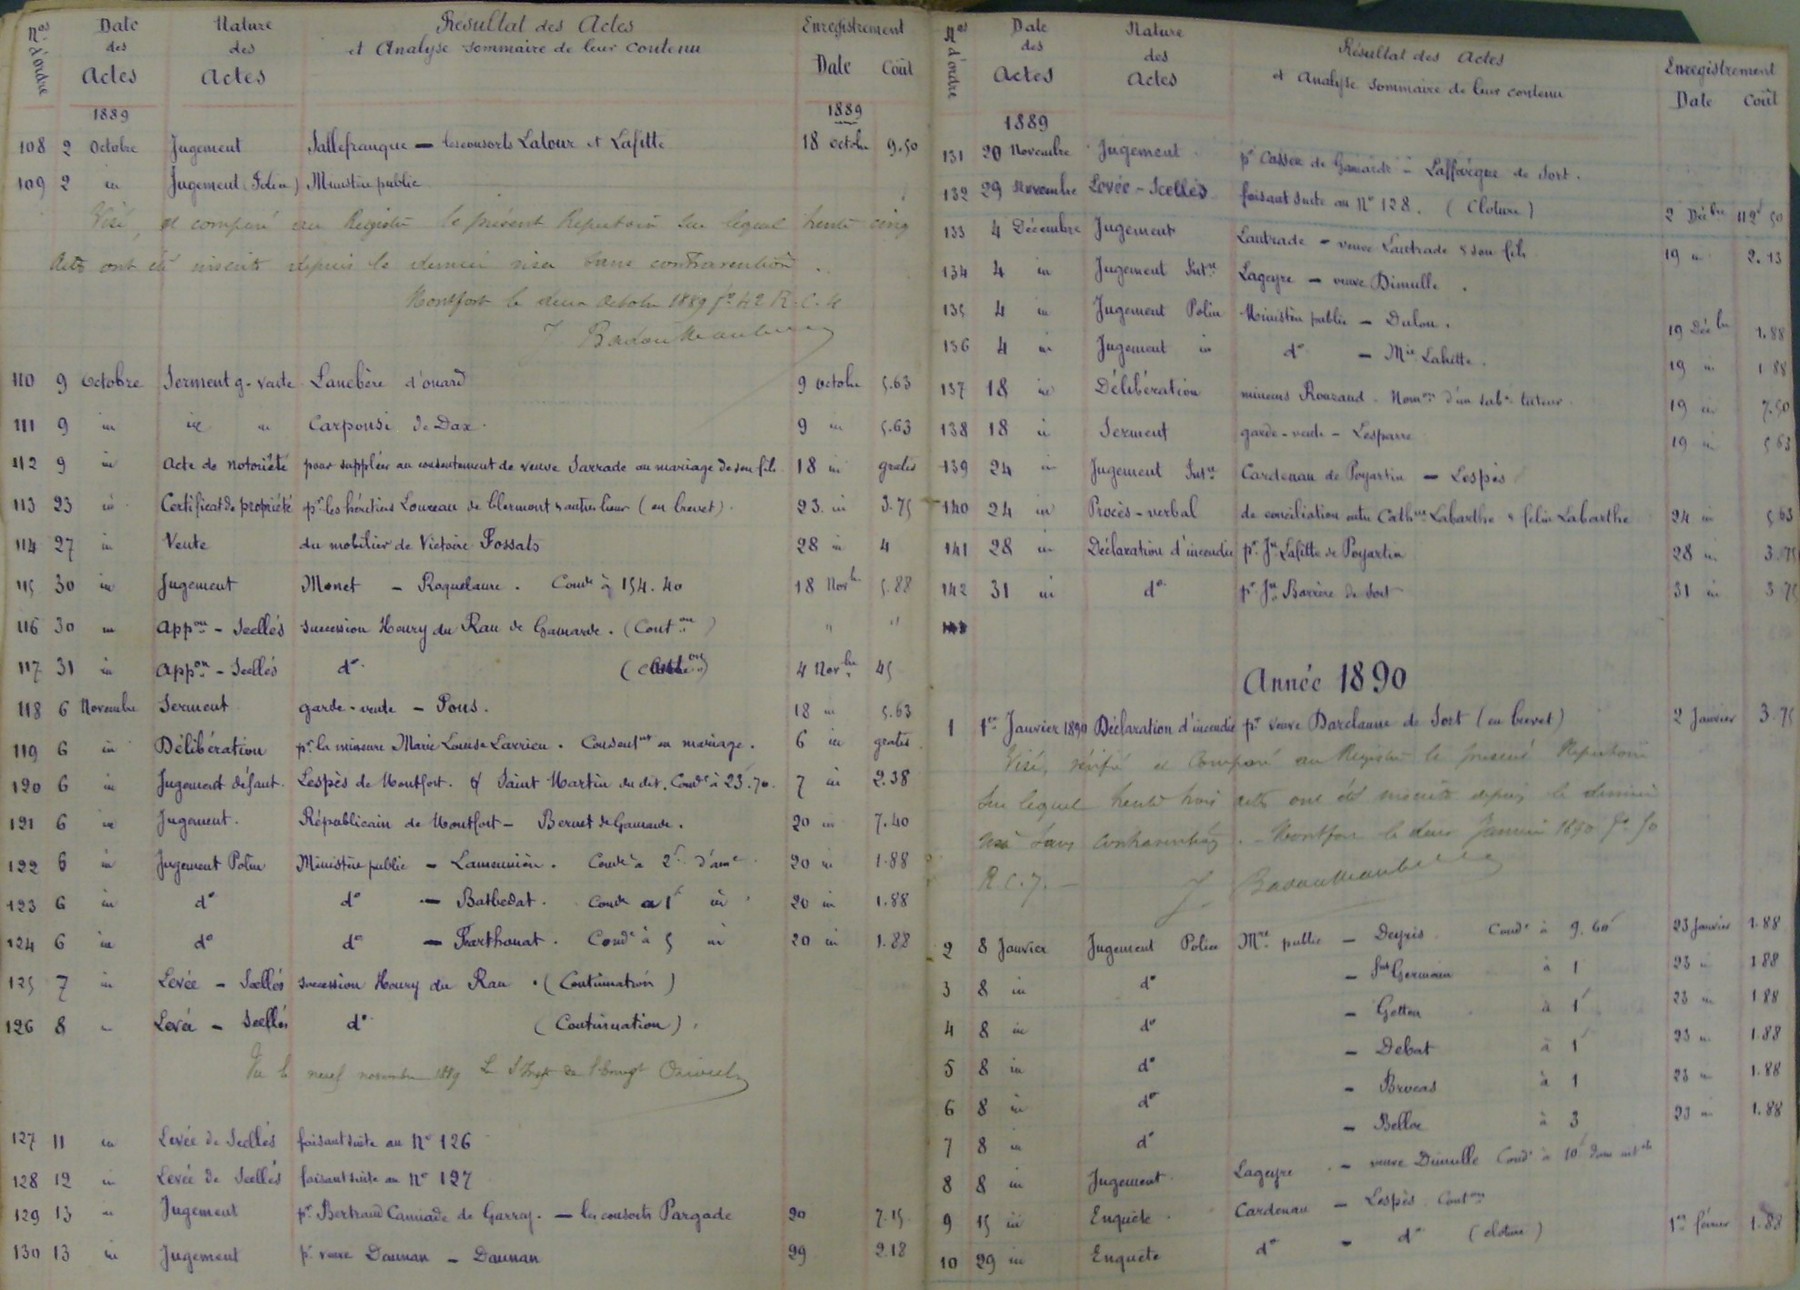 Nos d'ordre Date des Actes Nature des Actes Résultat des Actes et Analyse sommaire de leur contenu Enregistrement Date Coût
1889 1889
108 2 Octobre Jugement Sallefranque — les consorts Latour et Lafitte 18 octobre 9.50
109 2 in Jugement (Police) Ministère public
Visé, et comparé au Registre le présent Répertoire sur lequel trente cinq
actes ont été inscrits depuis le dernier visa sans contravention.
Montfort le deux Octobre 1889 fo 42 R. C.
110 9 Octobre Serment g-vente Lanebère d'onard 9 octobre 5.63
111 9 in in in Carpousi de Dax. 9 in 5.63
112 9 in Acte de notoriété pour suppléer au consentement de veuve Sarrade au mariage de son fils 18 in gratis
113 23 in Certificat de propriété pr les héritiers Louzeau de Clermont & autres lieux (en brevet). 23 in 3.75
114 27 in Vente du mobilier de Victoire Fossats 28 in 4
115 30 in Jugement Monet — Roquelaure. Condé à 154.40 18 Nobre 5.88
116 30 in Appon - Scellés succession Houry du Rau de Gamarde. (Conton) " "
117 31 in Appon - Scellés do. 4 Novbre 45
118 6 Novembre Serment garde-vente — Pons. 18 in 5.63
119 6 in Délibération pr la mineure Marie Louise Larrieu. Consentnt au mariage. 6 in gratis
120 6 in Jugement défaut. Lespès de Montfort. & Saint Martin du dit. Condé à 23f.70. 7 in 2.38
121 6 in Jugement. Républicain de Montfort — Bernet de Gamarde. 20 in 7.40
122 6 in Jugement Police Ministère public — Lamennion. Condé à 2f d'ame 20 in 1.88
123 6 in do do — Batbedat. Condé à 1f in 20 in 1.88
124 6 in do do — Farthouat. Condé à 5 in 20 in 1.88
125 7 in Levée - Scellés succession Houry du Rau. (Continuation)
126 8 in Levée - Scellés do. (Continuation).
Vu le neuf novembre 1889
127 11 in Levée de Scellés faisant suite au No 126
128 12 in Levée de Scellés faisant suite au No 127
129 13 in Jugement pr Bertrand Camiade de Garrey. — les consorts Pargade 20 7.15
130 13 in Jugement pr veuve Daunan — Daunan 29 2.18
Nos d'ordre Date des Actes Nature des Actes Résultat des Actes et Analyse sommaire de leur contenu Enregistrement Date Coût
1889
131 20 Novembre Jugement pr Cassen de Gamarde — Laffargue de Sort.
132 29 Novembre Levée - Scellés faisant suite au No 128. (Cloture) 2 Décbre 112f 50
133 4 Décembre Jugement Lautrade — veuve Lautrade & son fils 19 in 2.13
134 4 in Jugement Intre Lageyre — veuve Dimulle.
135 4 in Jugement Police Ministère public — Dulon. 19 Décbre 1.88
136 4 in Jugement in do — Mie Lahitte. 19 in 1 88
137 18 in Délibération mineurs Rouzaud. Nomon d'un subé tuteur. 19 in 7.50
138 18 in Serment garde-vente — Lesparre 19 in 5 63
139 24 in Jugement Intre Cardenau de Poyartin — Lespès
140 24 in Procès-verbal de conciliation entre Cathne Labarthe & félix Labarthe 24 in 5 63
141 28 in Déclaration d'incendie pr Jn Lafitte de Poyartin 28 in 3.75
142 31 in do pr Jn Barrère de Sort 31 in 3 75
143
Année 1890
1 1er Janvier 1890 Déclaration d'incendie pr veuve Darclanne de Sort (en brevet) 2 Janvier 3.75
Visé, vérifié et comparé au Registre le présent Répertoire
sur lequel trente trois actes ont été inscrits depuis le dernier
visa sans contravention. — Montfort le deux Janvier 1890 fo 50
R. C. 7.
2 8 Janvier Jugement Police Mre public — Deyris Condé à 9.60f 23 Janvier 1.88
3 8 in do — St Germain à 1 23 in 1 88
4 8 in do — Gotton à 1f 23 in 1 88
5 8 in do — Debat à 1f 23 in 1.88
6 8 in do — Brocas à 1 23 in 1.88
7 8 in do — Belloc à 3 23 in 1.88
8 8 in Jugement. Lageyre — veuve Dimulle Condé à 10f
9 15 in Enquête. Cardenau — Lespès. Conton
10 29 in Enquête do — do (cloture) 1er février 1.88